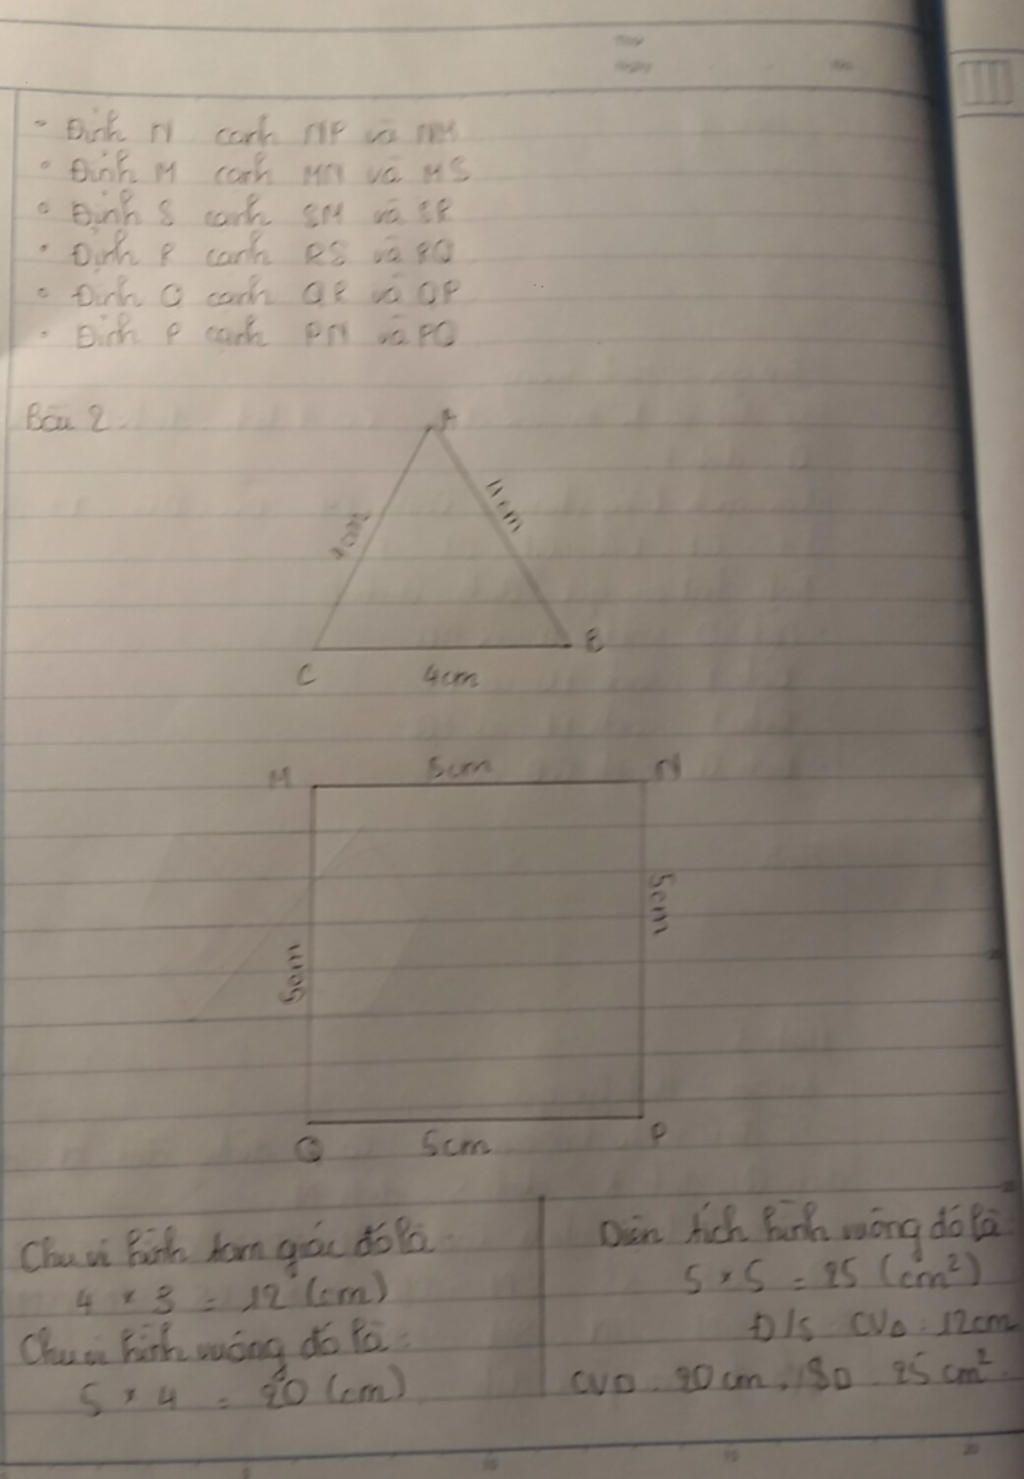 • Đỉnh N cạnh NP và NM
• Đỉnh M cạnh MN và MS
• Đỉnh S cạnh SM và SR
• Đỉnh R cạnh RS và RQ
• Đỉnh Q cạnh QR và QP
• Đỉnh P cạnh PN và PQ
Bài 2.
A
4cm
4cm
C
B
4cm
M
5cm
N
5cm
5cm
Q
5cm
P
Chu vi hình tam giác đó là
4 x 3 = 12 (cm)
Chu vi hình vuông đó là:
5 x 4 = 20 (cm)
Diện tích hình vuông đó là:
5 x 5 = 25 (cm²)
Đ/s: CVΔ: 12cm
CV□: 20cm, S□: 25cm²